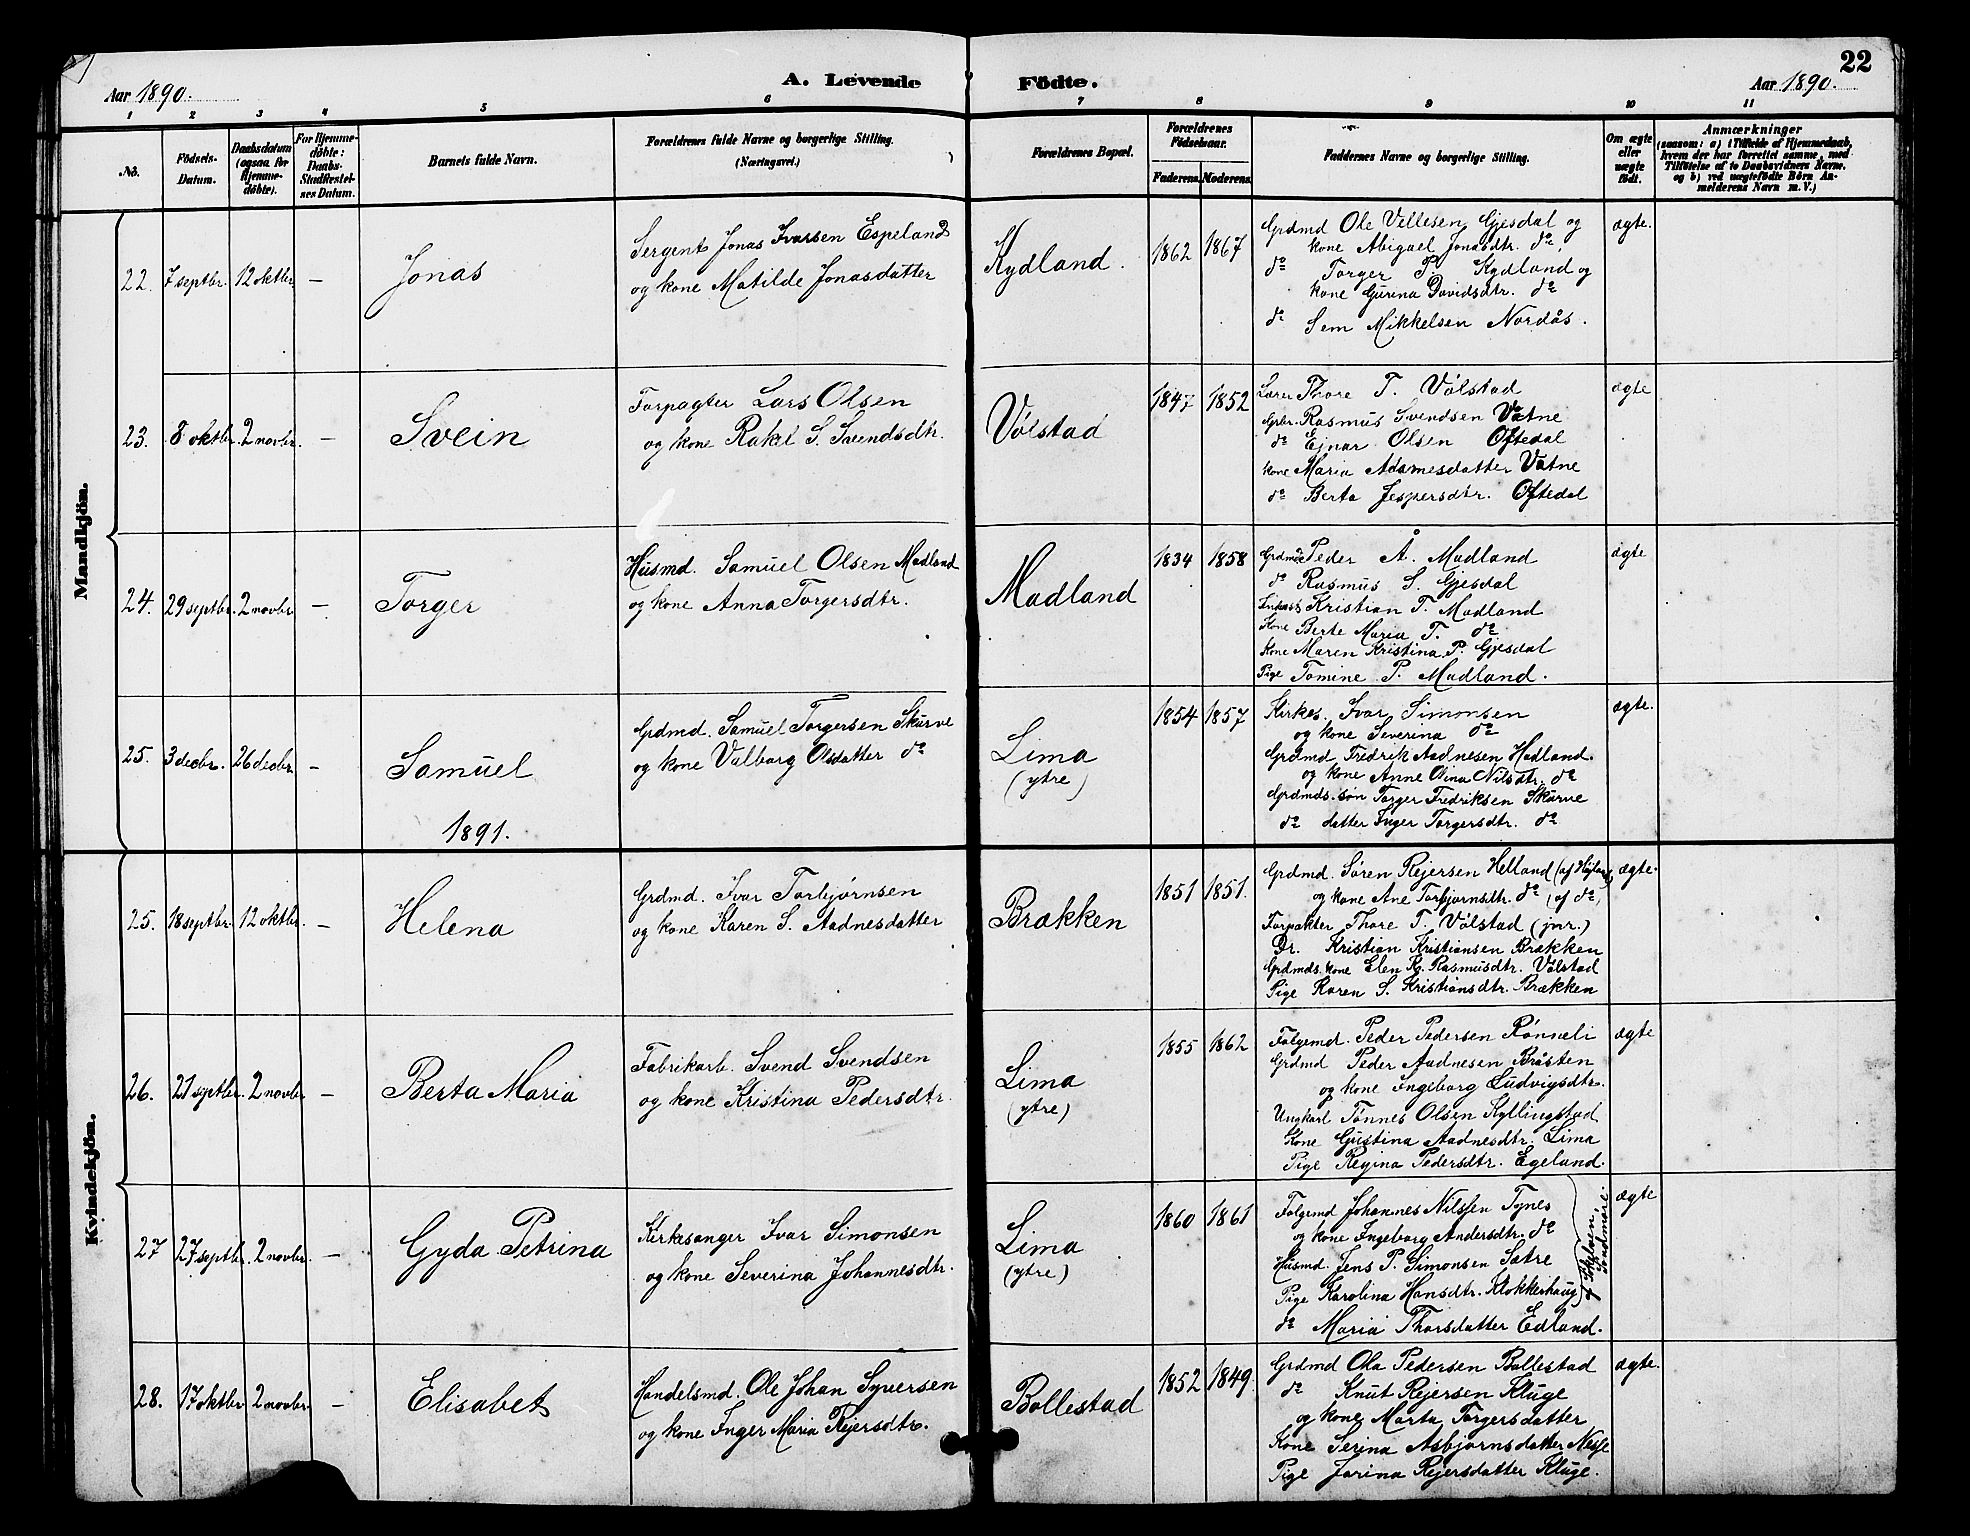 22
Aar 1890. A. Levende Födte. Aar 1890.
1 2 3 4 5 6 7 8 9 10 11
No.
Födsels-Datum.
Daabsdatum (ogsaa for Hjemme-döbte).
For Hjemme-döbte: Daabs-Stadfæstel-ses Datum.
Barnets fulde Navn.
Forældrenes fulde Navne og borgerlige Stilling.
(Næringsvei.)
Forældrenes Bopæl.
Forældrenes Födselsaar.
Faderens. Moderens.
Faddernes Navne og borgerlige Stilling.
Om ægte eller uægte födt.
Anmærkninger
(saasom: a) i Tilfælde af Hjemmedaab, hvem der har forrettet samme, med Tilföielse af to Daabsvidners Navne. og b) ved uægtefödte Börn An-melderens Navn m.V.)
Mandkjön.
22. 7 septbr. 12 oktbr. — Jonas
Sergent Jonas Ivarsen Espeland
og kone Matilde Jonasdatter
Kydland. 1862 1867
Grdmd Ole Vellesen Gjesdal og
kone Abigael Jonasdtr. do
do Torger P. Kydland og
kone Gurina Davidsdtr. do
do Sem Mikkelsen Nordås.
ægte.
23. 8 oktbr. 2 novbr. — Svein
Forpagter Lars Olsen
og kone Rakel S. Svendsdtr.
Vølstad 1847 1852
Lærer Thore T. Vølstad
Gbr. Rasmus Svendsen Vatne
do Ejnar Olsen Oftedal
kone Maria Adamesdatter Vatne
do Berta Jespersdtr. Oftedal
ægte
24. 29 septbr. 2 novbr. — Torger
Husmd. Samuel Olsen Madland
og kone Anna Torgersdtr.
Madland 1834 1858
Grdmd Peder Å. Madland
do Rasmus S. Gjesdal
Kristian T. Madland
Kone Berte Maria T. do
Kone Maren Kristina P. Gjesdal
Pige Tomine P. Madland.
ægte
25. 3 decbr. 26 decbr. — Samuel
Grdmd. Samuel Torgersen Skurve
og kone Valborg Olsdatter do
Lima
(ytre)
1854 1857
Kirkes. Ivar Simonsen
og kone Severina do
Grdmd Fredrik Aadnesen Hadland.
og kone Anne Olina Nilsdtr. do
Grdmds. søn Torger Fredriksen Skurve
do datter Inger Torgersdtr. do
ægte.
1891.
Kvindekjön.
25. 18 septbr. 12 oktbr. — Helena
Grdmd. Ivar Torbjørnsen
og kone Karen S. Aadnesdatter
Brækken 1851 1851.
Grdmd. Søren Rejersen Helland (af Høiland)
og kone Ane Torbjørnsdtr. do (af do)
Forpakter Thore T. Vølstad (jnr.)
Dr. Kristian Kristiansen Brækken
Grdmds. kone Elen Kg. Rasmusdtr. Vølstad
Pige Karen S. Kristiansdtr. Brækken
ægte.
26. 21 septbr. 2 novbr. — Berta Maria
Fabrikarb. Svend Svendsen
og kone Kristina Pedersdtr.
Lima
(ytre)
1855 1862
Følgemd. Peder Pedersen Rønneli
Grdmd Peder Aadnesen Bråsten
og kone Ingeborg Ludvigsdtr.
Ungkarl Tønnes Olsen Kyllingstad
Kone Gustina Aadnesdtr. Lima
Pige Regina Pedersdtr. Egeland.
ægte
27 27 septbr. 2 novbr. — Gyda Petrina
Kirkesanger Ivar Simonsen
og kone Severina Johannesdtr.
Lima
(ytre)
1860 1861
Følgemd Johannes Nilssen Tynes
og kone Ingeborg Andersdtr. do
Husmd. Jens P. Simonsen Sætre
Pige Karolina Hansdtr. Klokkerhaug
do Maria Thorsdatter Edland.
Søndmøre.
ægte
28. 17 oktbr. 2 novbr. — Elisabet
Handelsmd. Ole Johan Syversen
og kone Inger Maria Rejersdtr.
Bollestad 1852 1849.
Grdmd Ola Pedersen Bollestad
do Knut Rejersen Kluge
og kone Marta Torgersdatter
Kone Serina Asbjørnsdatter Nesse
Pige Jorina Rejersdatter Kluge.
ægte.